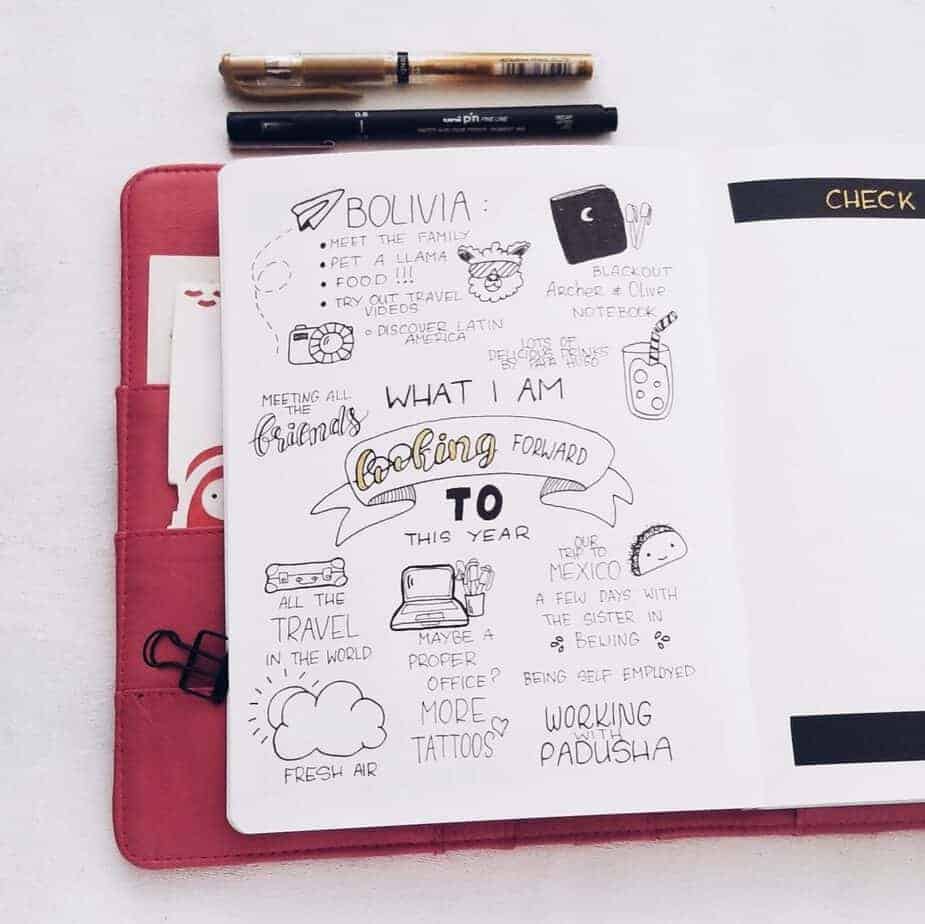 uni pin FINE LINE
0.8
BOLIVIA:
• MEET THE FAMILY
• PET A LLAMA
• FOOD!!!
• TRY OUT TRAVEL
VIDEOS
○ DISCOVER LATIN
AMERICA
BLACKOUT
Archer & Olive
NOTEBOOK
LOTS OF
DELICIOUS DRINKS
BY PAPA HUGO
MEETING ALL
THE
friends
WHAT I AM
looking FORWARD
TO
THIS YEAR
ALL THE
TRAVEL
IN THE WORLD
MAYBE A
PROPER
OFFICE?
OUR
TRIP TO
MEXICO
A FEW DAYS WITH
THE SISTER IN
BEIJING
BEING SELF EMPLOYED
FRESH AIR
MORE
TATTOOS
WORKING
WITH
PADUSHA
CHECK